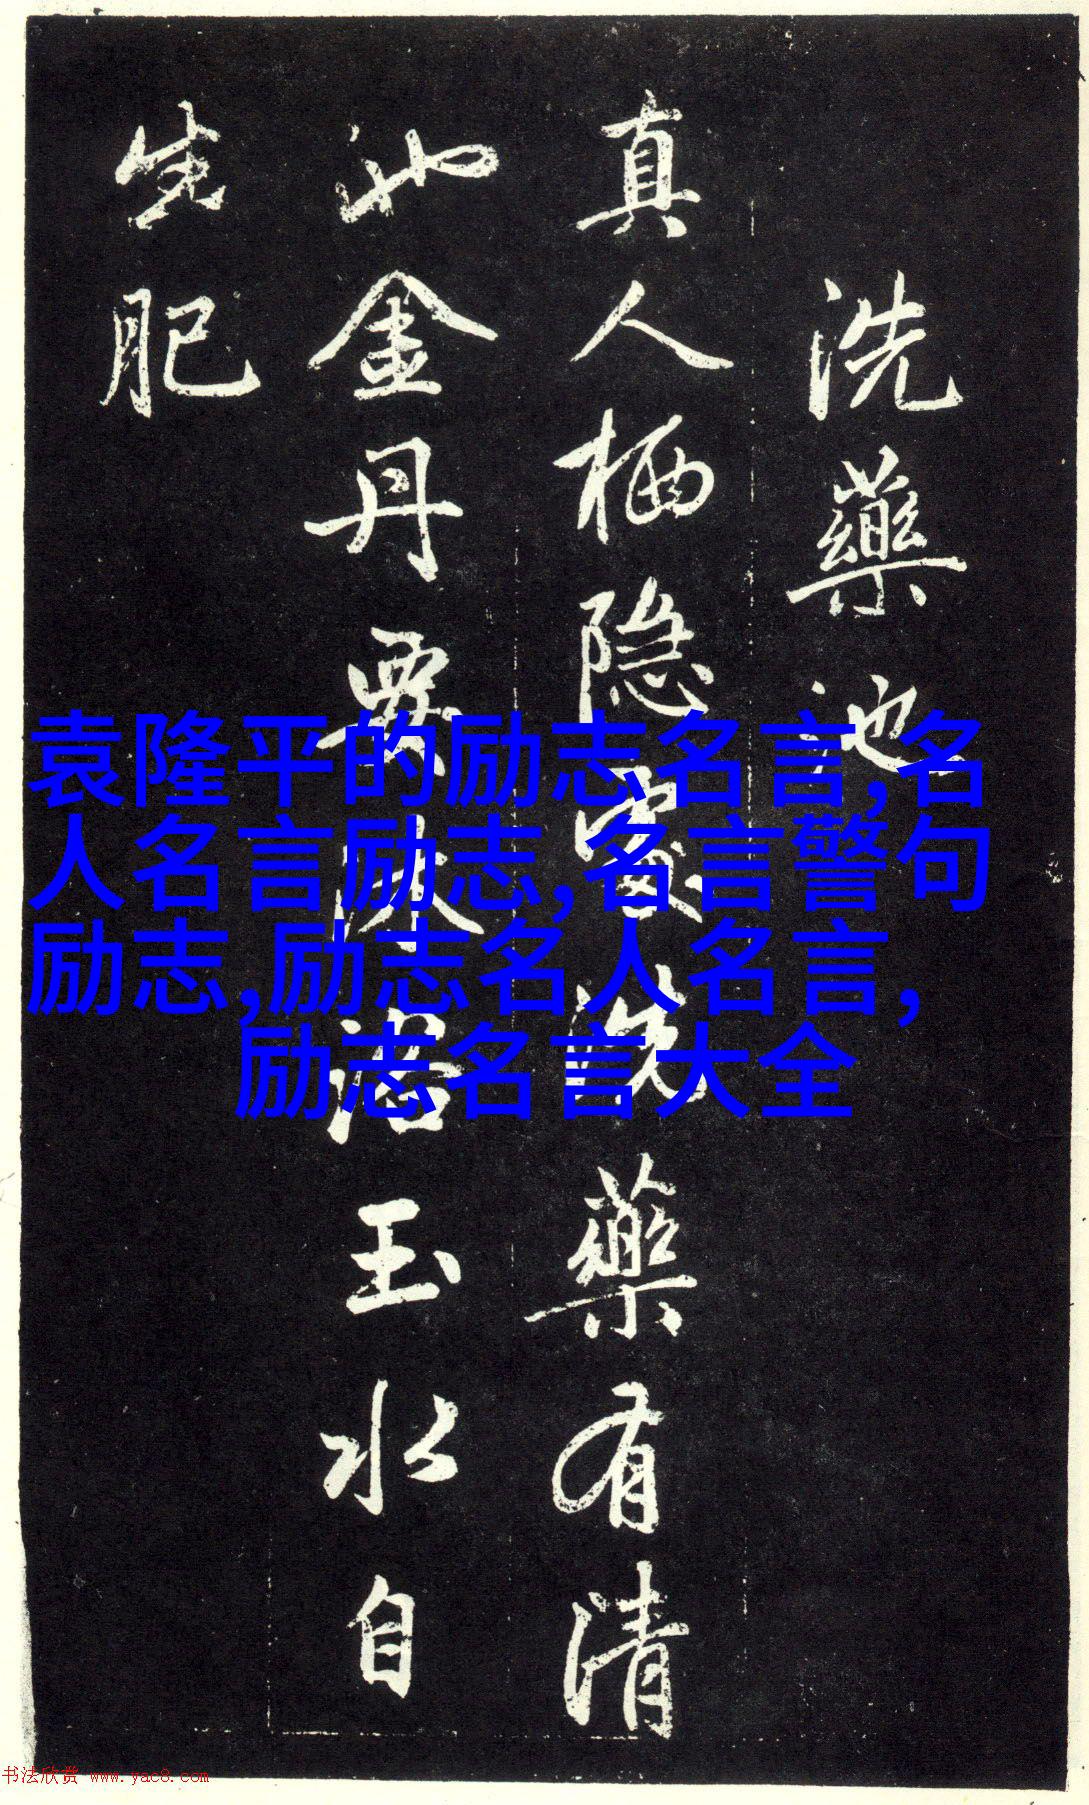 洗藥池
真人栖隐處洗藥有清
沙金丹要沐浴玉水自
生肥
袁隆平的励志名言,名
人名言励志,名言警句
励志,励志名人名言,
励志名言大全
书法欣赏 www.yac8.com